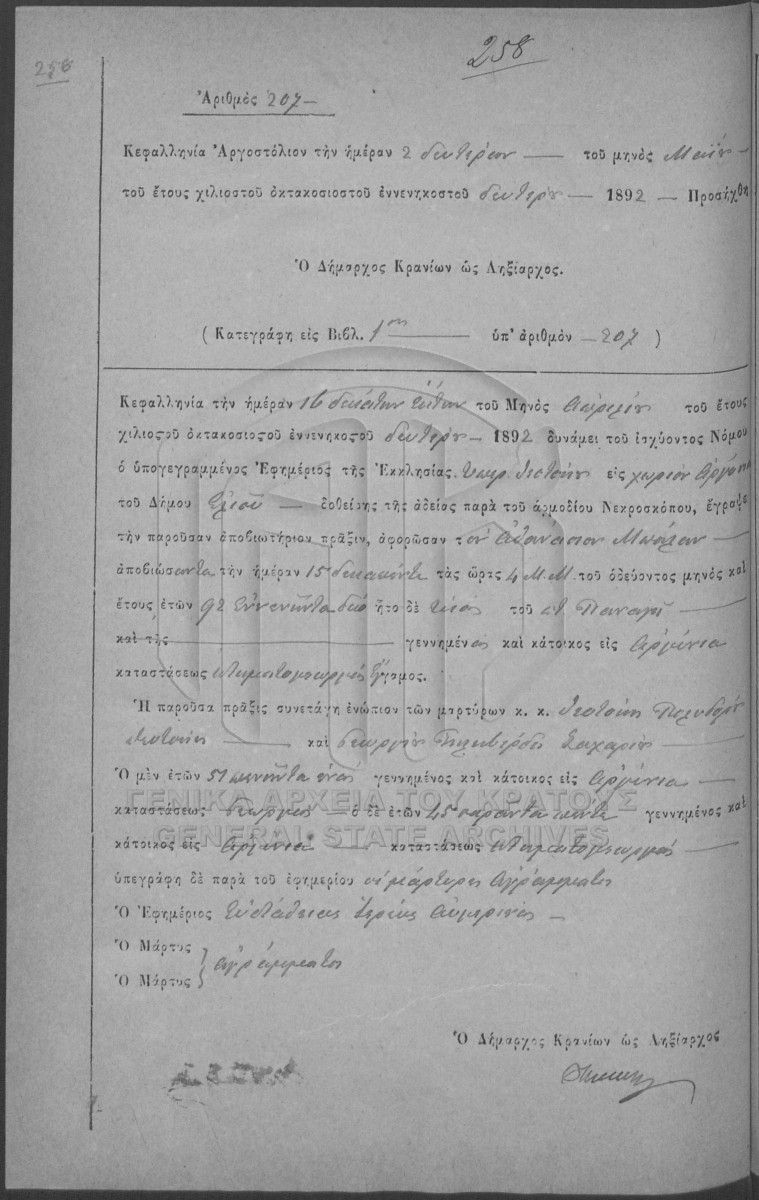 258
256
Ἀριθμὸς 207 –
Κεφαλληνία Ἀργοστόλιον τὴν ἡμέραν 2 δευτέραν — τοῦ μηνὸς Μαΐου –
τοῦ ἔτους χιλιοστοῦ ὀκτακοσιοστοῦ ἐννενηκοστοῦ δευτέρου – 1892 – Προσήχθη
Ὁ Δήμαρχος Κρανίων ὡς Ληξίαρχος.
(Κατεγράφη εἰς Βιβλ. 1ον — ὑπ' ἀριθμὸν – 207)
Κεφαλληνία τὴν ἡμέραν 16 δεκάτην ἕκτην τοῦ Μηνὸς Ἀπριλίου τοῦ ἔτους
χιλιοστοῦ ὀκτακοσιοστοῦ ἐννενηκοστοῦ δευτέρου – 1892 δυνάμει τοῦ ἰσχύοντος Νόμου
ὁ ὑπογεγραμμένος Ἐφημέριος τῆς Ἐκκλησίας εἰς χωρίον Ἀργίνια
τοῦ Δήμου Ἐλιοῦ – δοθείσης τῆς ἀδείας παρὰ τοῦ ἁρμοδίου Νεκροσκόπου, ἔγραψε
τὴν παροῦσαν ἀποβιωτήριον πρᾶξιν, ἀφορῶσαν τὸν Ἀθανάσιον —
ἀποβιώσαντα τὴν ἡμέραν 15 δεκαπέντε τὰς ὥρας 4 Μ.Μ. τοῦ ὁδεύοντος μηνὸς καὶ
ἔτους ἐτῶν 92 ἐννενῆντα δύο ἦτο δὲ υἱὸς τοῦ Παναγῆ —
καὶ τῆς — γεννημένος καὶ κάτοικος εἰς Ἀργίνια
καταστάσεως κτηματογεωργὸς ἔγγαμος.
Ἡ παροῦσα πρᾶξις συνετάγη ἐνώπιον τῶν μαρτύρων κ. κ.
— καὶ Γεωργίου Ζαχαρίου —
Ὁ μὲν ἐτῶν 51 πενῆντα ἑνὸς γεννημένος καὶ κάτοικος εἰς Ἀργίνια –
καταστάσεως γεωργὸς – ὁ δὲ ἐτῶν 45 σαράντα πέντε γεννημένος καὶ
κάτοικος εἰς Ἀργίνια — καταστάσεως κτηματογεωργὸς –
ὑπεγράφη δὲ παρὰ τοῦ ἐφημερίου οἱ μάρτυρες ἀγράμματοι
Ὁ Ἐφημέριος Εὐστάθειος ἱερεὺς –
Ὁ Μάρτυς
ἀγράμματοι
Ὁ Μάρτυς
Ὁ Δήμαρχος Κρανίων ὡς Ληξίαρχος
ΓΕΝΙΚΑ ΑΡΧΕΙΑ ΤΟΥ ΚΡΑΤΟΥΣ
GENERAL STATE ARCHIVES